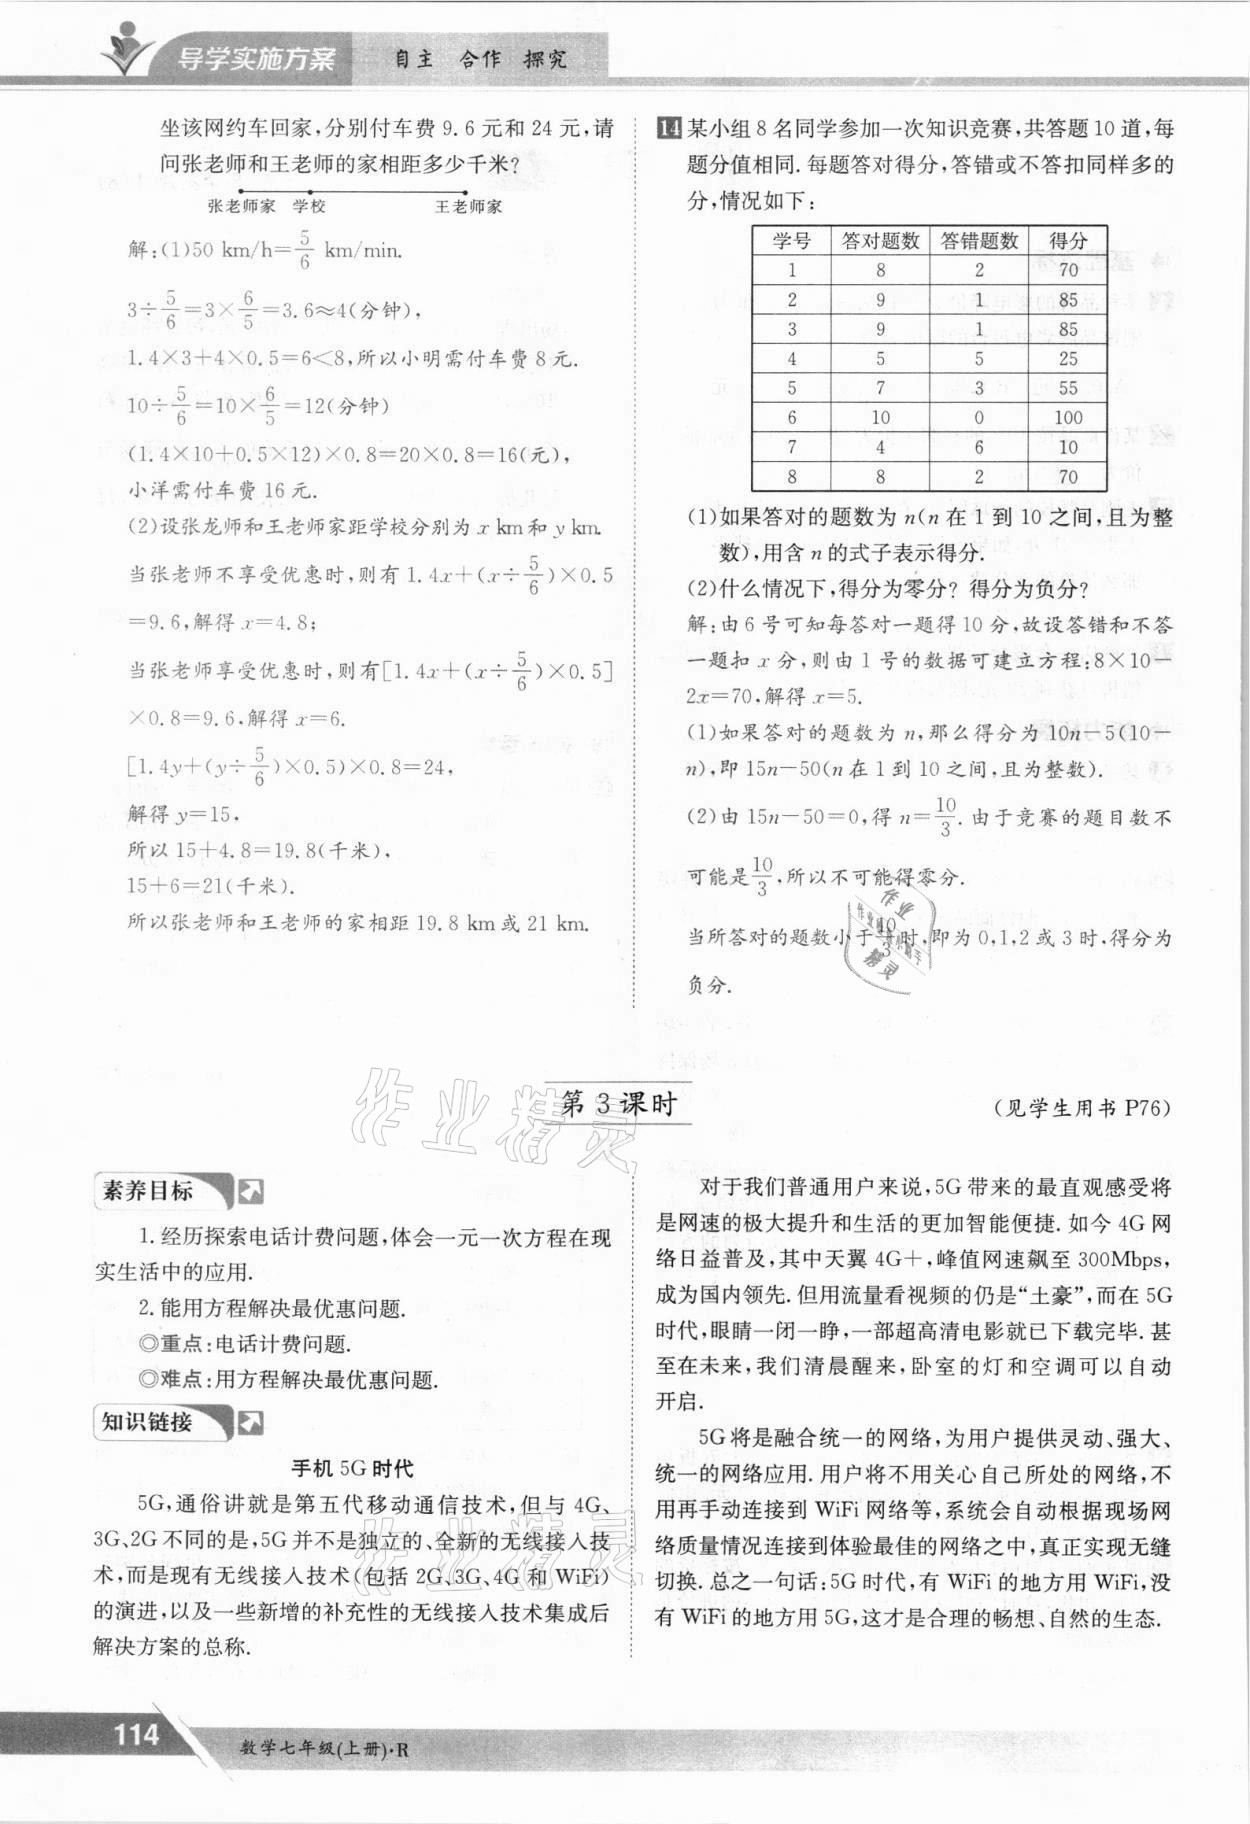 导学实施方案 自主 合作 探究
坐该网约车回家,分别付车费 9.6 元和 24 元,请
问张老师和王老师的家相距多少千米?
张老师家 学校 王老师家
解:(1)50 km/h=5/6 km/min.
3÷5/6=3×6/5=3.6≈4(分钟),
1.4×3+4×0.5=6<8,所以小明需付车费 8 元.
10÷5/6=10×6/5=12(分钟)
(1.4×10+0.5×12)×0.8=20×0.8=16(元),
小洋需付车费 16 元.
(2)设张龙师和王老师家距学校分别为 x km 和 y km.
当张老师不享受优惠时,则有 1.4x+(x÷5/6)×0.5
=9.6,解得 x=4.8;
当张老师享受优惠时,则有[1.4x+(x÷5/6)×0.5]
×0.8=9.6,解得 x=6.
[1.4y+(y÷5/6)×0.5)×0.8=24,
解得 y=15,
所以 15+4.8=19.8(千米),
15+6=21(千米).
所以张老师和王老师的家相距 19.8 km 或 21 km.
14 某小组 8 名同学参加一次知识竞赛,共答题 10 道,每
题分值相同.每题答对得分,答错或不答扣同样多的
分,情况如下:
学号 答对题数 答错题数 得分
1 8 2 70
2 9 1 85
3 9 1 85
4 5 5 25
5 7 3 55
6 10 0 100
7 4 6 10
8 8 2 70
(1)如果答对的题数为 n(n 在 1 到 10 之间,且为整
数),用含 n 的式子表示得分.
(2)什么情况下,得分为零分? 得分为负分?
解:由 6 号可知每答对一题得 10 分,故设答错和不答
一题扣 x 分,则由 1 号的数据可建立方程:8×10-
2x=70,解得 x=5.
(1)如果答对的题数为 n,那么得分为 10n-5(10-
n),即 15n-50(n 在 1 到 10 之间,且为整数).
(2)由 15n-50=0,得 n=10/3.由于竞赛的题目数不
可能是10/3,所以不可能得零分.
当所答对的题数小于10/3时,即为 0,1,2 或 3 时,得分为
负分.
第 3 课时
(见学生用书 P76)
素养目标
1.经历探索电话计费问题,体会一元一次方程在现
实生活中的应用.
2.能用方程解决最优惠问题.
◎重点:电话计费问题.
◎难点:用方程解决最优惠问题.
知识链接
手机 5G 时代
5G,通俗讲就是第五代移动通信技术,但与 4G、
3G、2G 不同的是,5G 并不是独立的、全新的无线接入技
术,而是现有无线接入技术(包括 2G、3G、4G 和 WiFi)
的演进,以及一些新增的补充性的无线接入技术集成后
解决方案的总称.
对于我们普通用户来说,5G 带来的最直观感受将
是网速的极大提升和生活的更加智能便捷.如今 4G 网
络日益普及,其中天翼 4G+,峰值网速飙至 300Mbps,
成为国内领先.但用流量看视频的仍是“土豪”,而在 5G
时代,眼睛一闭一睁,一部超高清电影就已下载完毕.甚
至在未来,我们清晨醒来,卧室的灯和空调可以自动
开启.
5G 将是融合统一的网络,为用户提供灵动、强大、
统一的网络应用.用户将不用关心自己所处的网络,不
用再手动连接到 WiFi 网络等,系统会自动根据现场网
络质量情况连接到体验最佳的网络之中,真正实现无缝
切换.总之一句话:5G 时代,有 WiFi 的地方用 WiFi,没
有 WiFi 的地方用 5G,这才是合理的畅想、自然的生态.
作业精灵
作业精灵
114
数学七年级(上册)·R